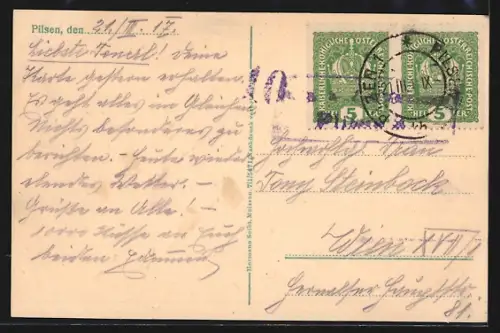 Pilsen, den 21/III. 17.
Liebste Toncsl! Deine
Karte gestern erhalten.
Es geht alles im Gleichen
Nichts besonderes zu
berichten. – Heute wieder
elendes Wetter. –
Grüße an Alle! –
1000 Küsse an Euch
beiden
Hermann Seibt, Meissen
KAISERLICHE KÖNIGLICHE ÖSTERREICHISCHE POST
5 HELLER
KAISERLICHE KÖNIGLICHE ÖSTERREICHISCHE POST
5 HELLER
PILSEN
Frau
Tony Steinbock
Wien XVII/2
Hernalser Hauptstr.
81.